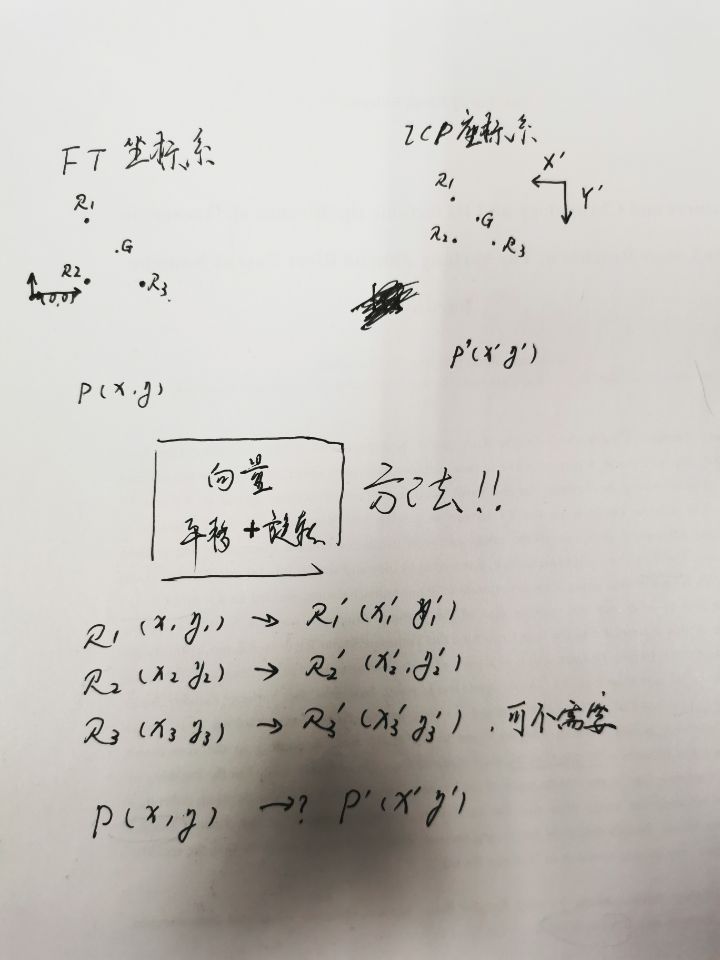 FT 坐标系
R1
G
R2
R3
(0,0)
P(x,y)
TCP 座标系
X'
Y'
R1
G
R2
R3
P'(x' y')
向量
平移 + 旋转
方法!!
R1 (x1 y1) → R1' (x1' y1')
R2 (x2 y2) → R2' (x2', y2')
R3 (x3 y3) → R3' (x3' y3') . 可不需要
P(x, y) →? P'(x' y')